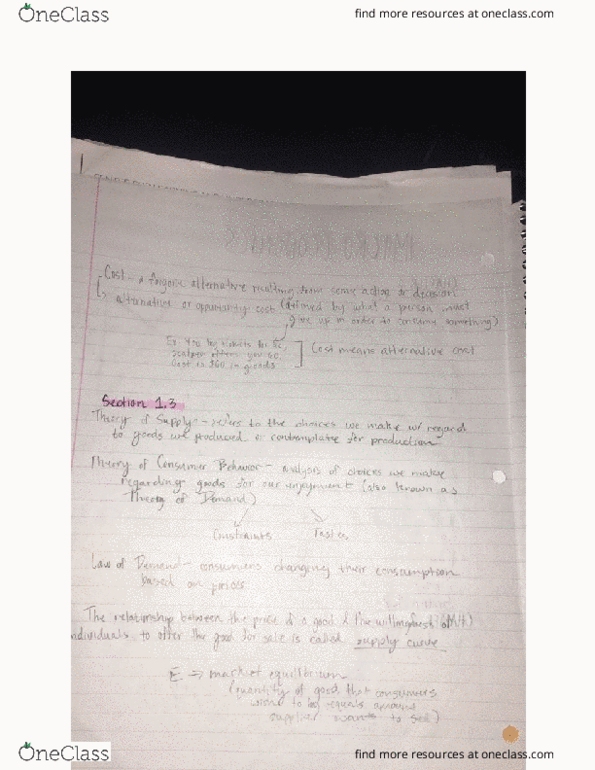 OneClass
find more resources at oneclass.com
MICRO ECONOMICS
- Cost - a forgone alternative resulting from some action or decision
alternative or opportunity cost (defined by what a person must
give up in order to consume something)
Ex. you buy tickets for
scalper offers you 60.
Cost is $60 in goods
Cost means alternative cost
Section 1.3
Theory of Supply - refers to the choices we make w/ regards
to goods we produced or contemplate for production
Theory of Consumer Behavior - analysis of choices we make
regarding goods for our enjoyment (also known as
Theory of Demand)
Constraints Tastes
Law of Demand - consumers changing their consumption
based on prices
The relationship between the price of a good & the willingness of
individuals to offer the good for sale is called supply curve
E => market equilibrium
(quantity of good that consumers
want to buy equals amount
supplier wants to sell)
OneClass
find more resources at oneclass.com